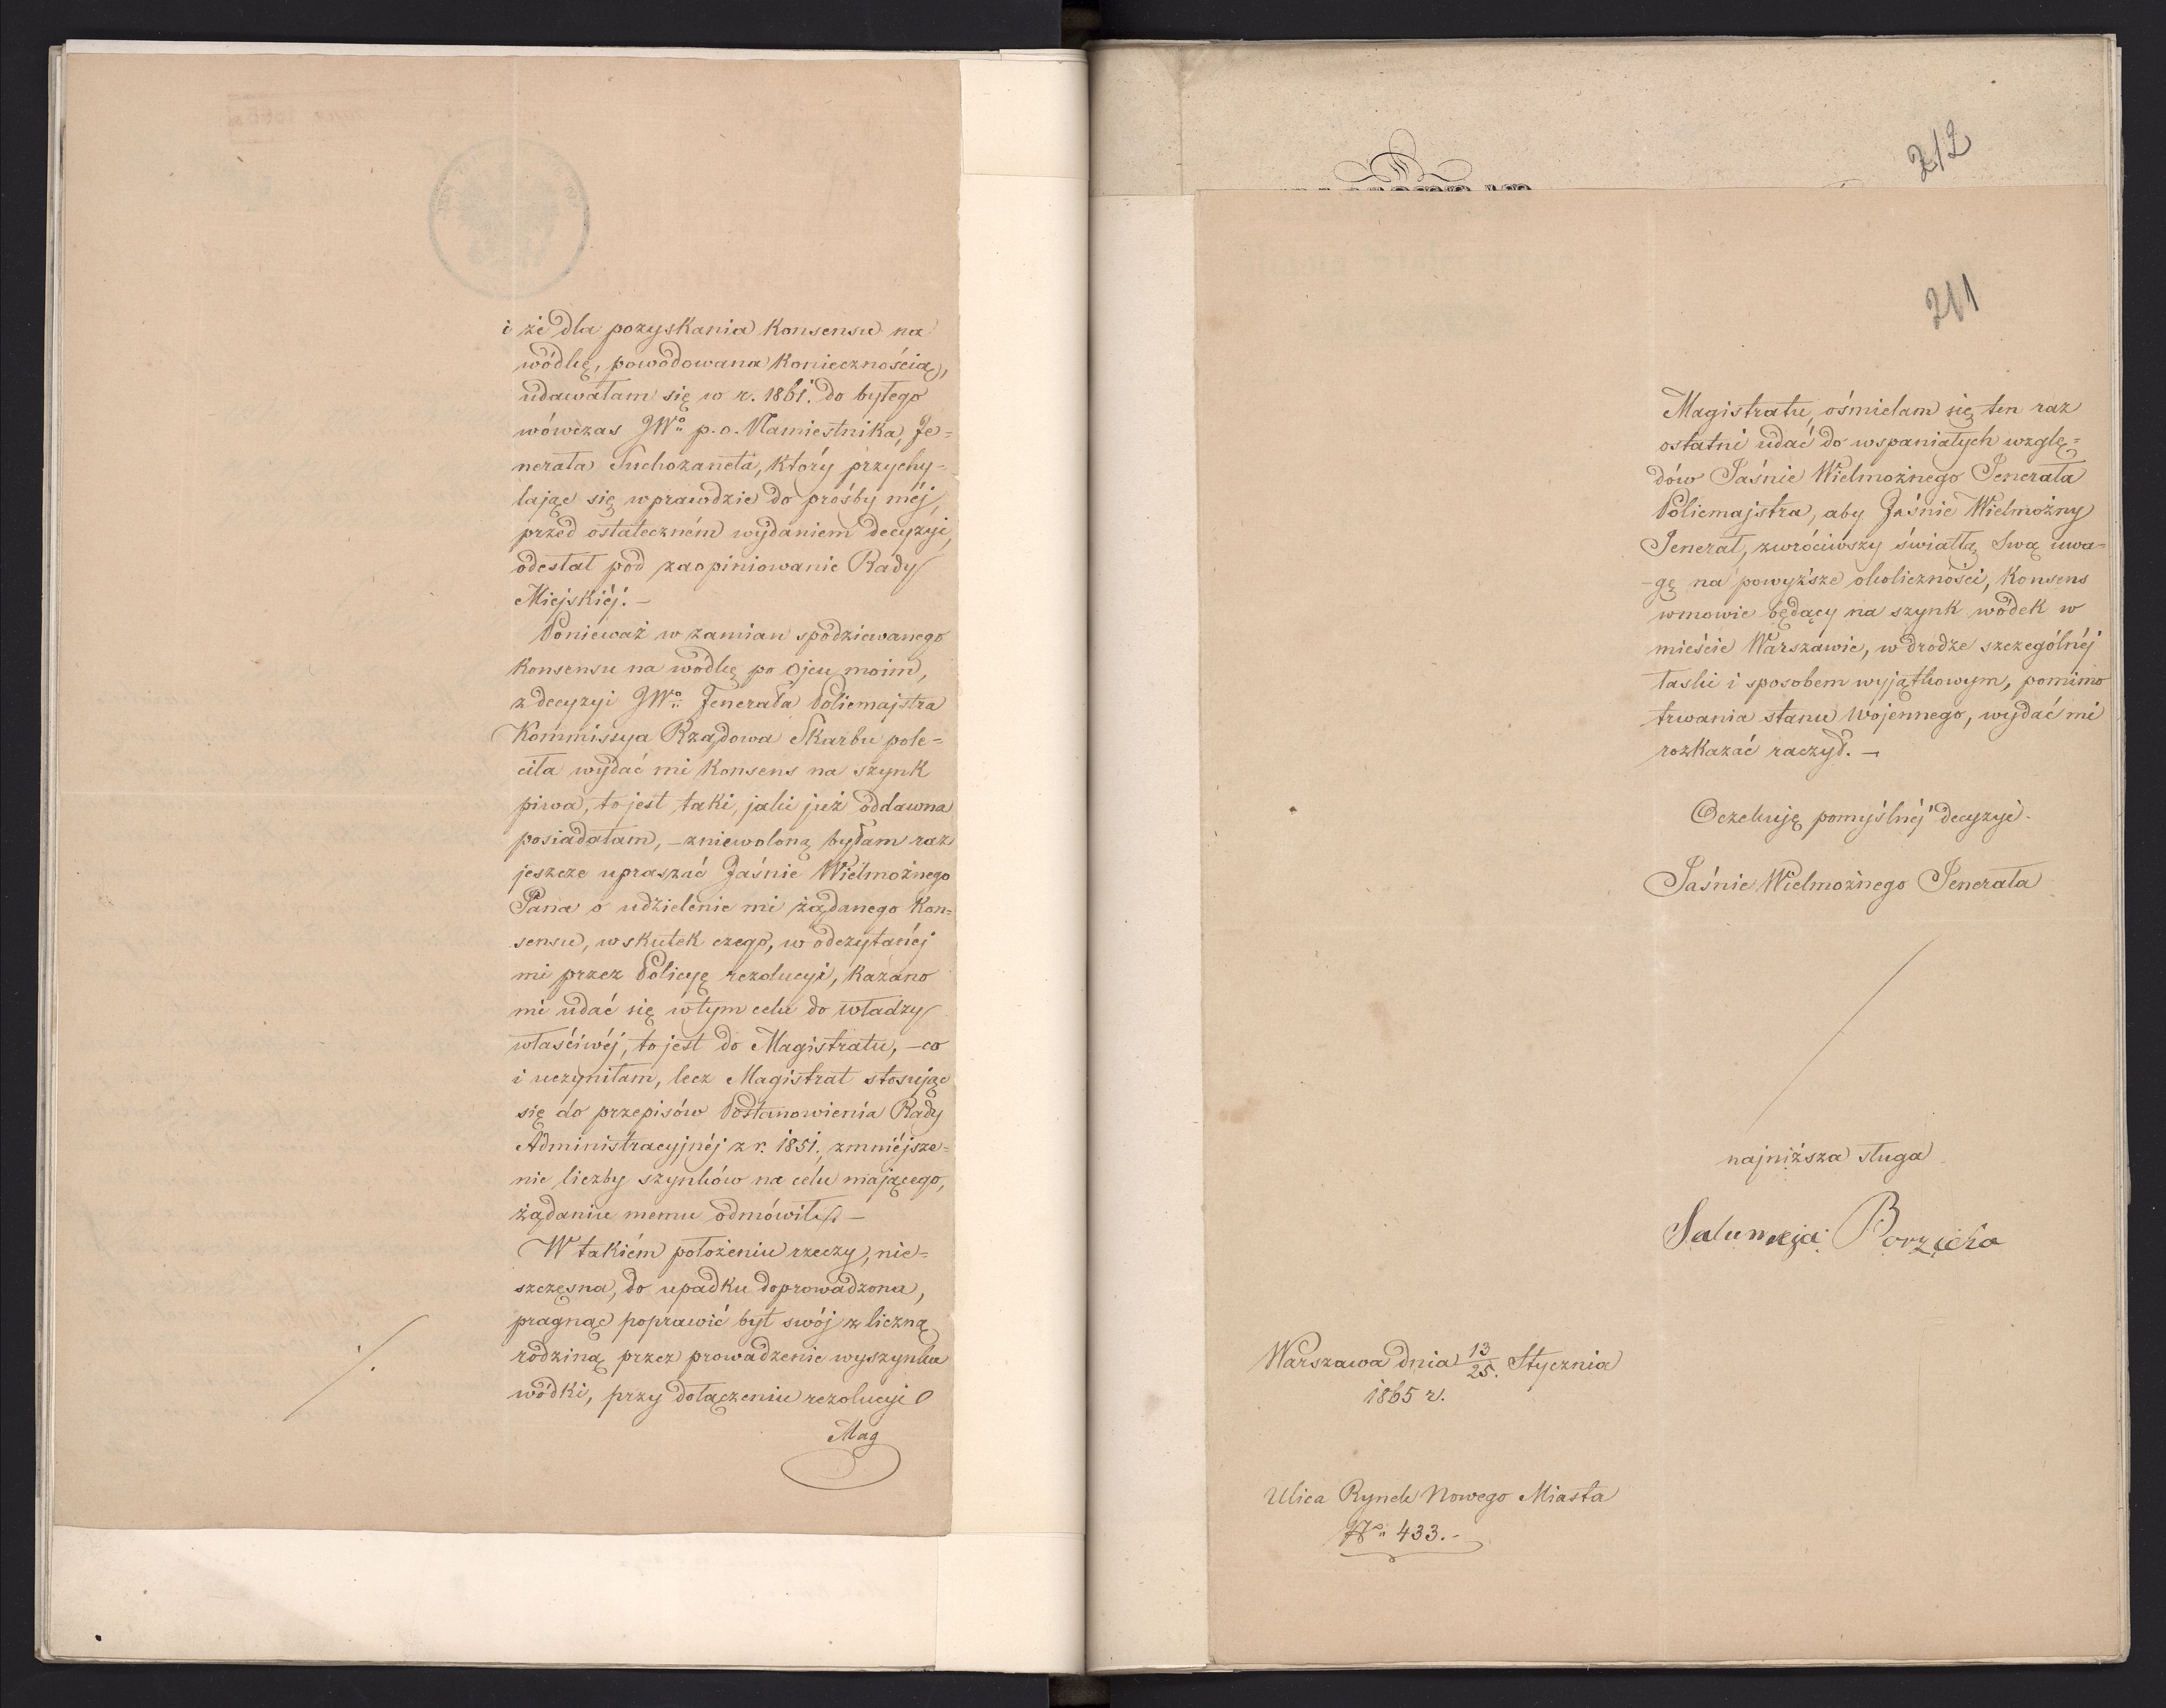 i że dla pozyskania Konsensu na
wódkę, powodowana Koniecznością,
udawałam się w r. 1861. do byłego
wówczas JWo p. o. Namiestnika, Je=
nerała Suchozaneta, który przychy-
lając się wprawdzie do prośby méj,
przed ostateczném wydaniem decyzyi,
odesłał pod zaopiniowanie Rady
Miejskiéj. —
Ponieważ w zamian spodziewanego
Konsensu na wódkę po Ojcu moim,
z decyzyi JWo Jenerała Policmajstra
Kommissya Rządowa Skarbu pole=
ciła wydać mi Konsens na szynk
piwa, to jest taki, jaki już oddawna
posiadałam, – zniewoloną byłam raz
jeszcze upraszać Jaśnie Wielmożnego
Pana o udzielenie mi żądanego Kon=
sensu, w skutek czego, w odczytanéj
mi przez Policyę rezolucyi, Kazano
mi udać się w tym celu do władzy
właściwéj, to jest do Magistratu, – co
i uczyniłam, lecz Magistrat stosując
się do przepisów Postanowienia Rady
Administracyjnéj z r. 1851. zmniéjsze=
nie liczby szynków na celu mającego,
żądaniu memu odmówił. —
W takiém położeniu rzeczy, nie=
szczęsna, do upadku doprowadzona,
pragnąc poprawić byt swój z liczną
rodziną przez prowadzenie wyszynku
wódki, przy dołączeniu rezolucyi
Mag
212
211
Magistratu, ośmielam się ten raz
ostatni udać do wspaniałych wzglę=
dów Jaśnie Wielmożnego Jenerała
Policmajstra, aby Jaśnie Wielmożny
Jenerał, zwróciwszy światłą Swą uwa=
-gę na powyższe okoliczności, Konsens
wmowie będący na szynk wódek w
mieście Warszawie, w drodze szczególnéj
łaski i sposobem wyjątkowym, pomimo
trwania stanu Wojennego, wydać mi
rozkazać raczył. —
Oczekuję pomyślnéj decyzyi.
Jaśnie Wielmożnego Jenerała
najniższa sługa
Salomeja Borzięcka
Warszawa dnia 13/25. Stycznia
1865 r.
Ulica Rynek Nowego Miasta
No 433. -